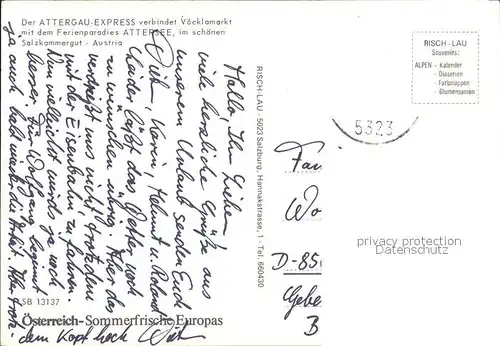 Der ATTERGAU-EXPRESS verbindet Vöcklamarkt
mit dem Ferienparadies ATTERSEE, im schönen
Salzkammergut - Austria
Hallo, Ihr Lieben!
viele herzliche Grüße aus
unserem Urlaub senden Euch
Karin, Helmut u. Roland.
Leider läßt das Wetter noch
zu wünschen übrig. Aber das
verdrießt uns nicht trotzdem
mit der Eisenbahn zu fahren.
Nun vielleicht wird's ja noch
besser. Für Wolfgang beginnt
ja auch bald wieder die Arbeit. Aber trotz-
dem Kopf hoch
RISCH-LAU - 5023 Salzburg, Hannakstrasse, 1 - Tel. 660430
RISCH-LAU
Souvenirs:
ALPEN - Kalender
- Diaserien
- Farbmappen
- Blumensamen
5323
Fam
Wo
D-850
Gebe
B
privacy protection
Datenschutz
SB 13137
Österreich-Sommerfrische Europas